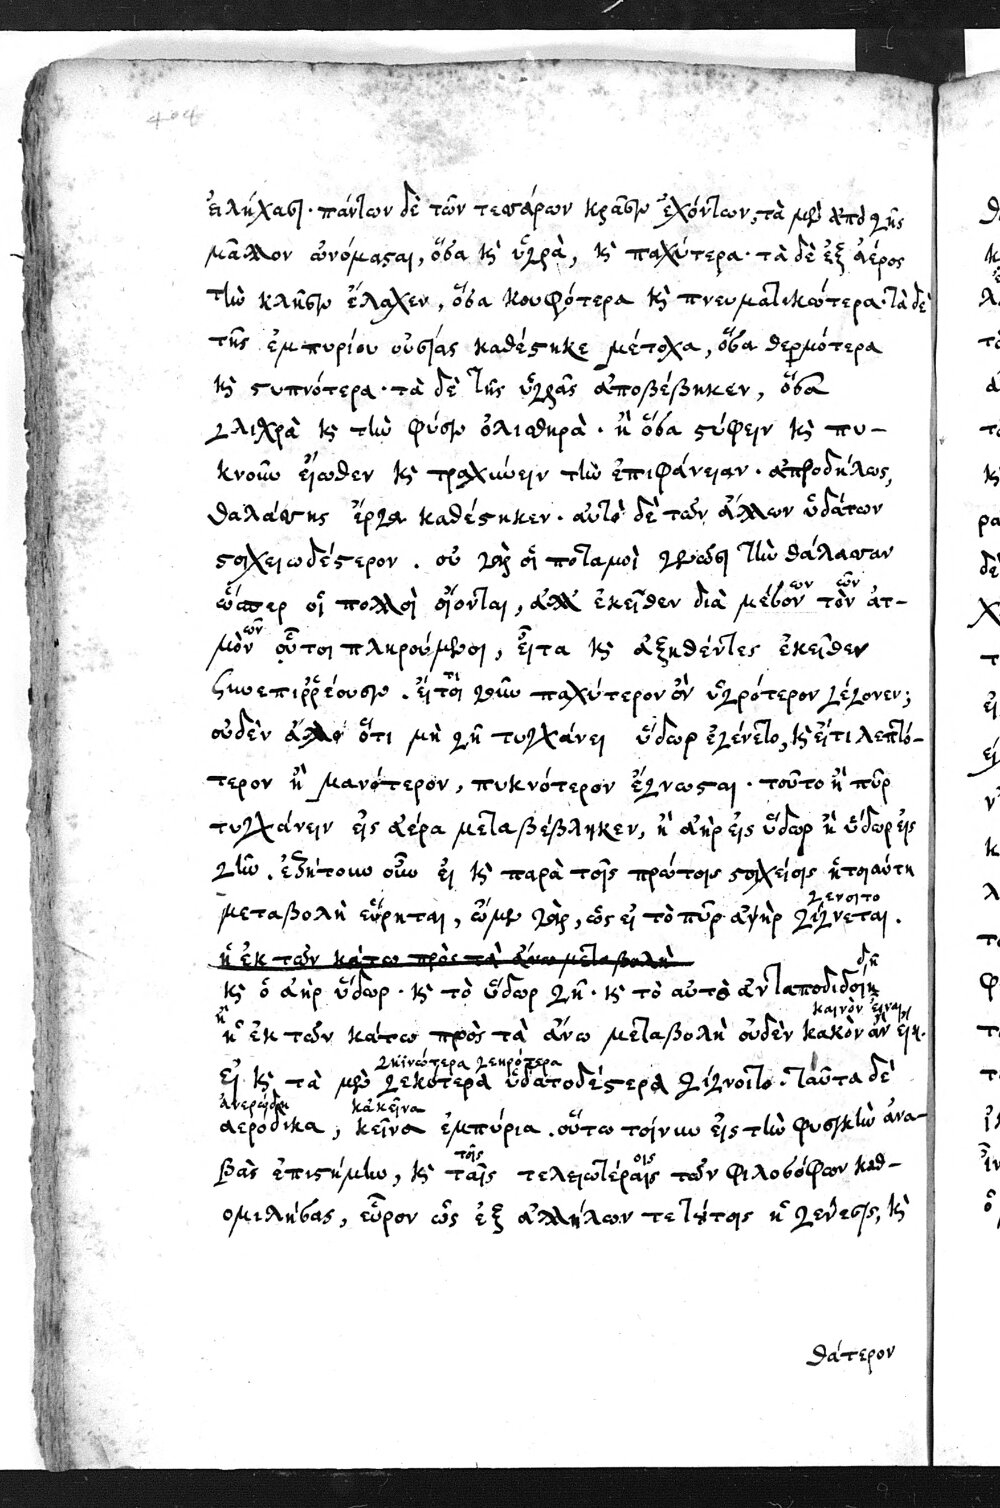 404
εἰλήχασι· πάντων δὲ τῶν τεσσάρων κρᾶσιν ἐχόντων, τὰ μὲν ἀπὸ γῆς
μᾶλλον ὠνόμασται, ὅσα κỳ ὑγρὰ, κỳ παχύτερα· τὰ δὲ ἐξ ἀέρος
τὴν κλῆσιν ἔλαχεν, ὅσα κουφότερα κỳ πνευματικώτερα· τὰ δὲ
τῆς ἐμπυρίου οὐσίας καθέστηκε μέτοχα, ὅσα θερμότερα
κỳ στυπνότερα· τὰ δὲ τῆς ὑγρᾶς ἀποβέβηκεν, ὅσα
γλιχρὰ κỳ τὴν φύσιν ὀλισθηρὰ· ἢ ὅσα στύφειν κỳ πυ-
κνοῦν εἴωθεν κỳ τραχύνειν τὴν ἐπιφάνειαν· ἀπροδήλως,
θαλάσσης ἔργα καθέστηκεν· αὐτὸ δὲ τῶν ἄλλων ὑδάτων
στοιχειωδέστερον. οὐ γὰρ οἱ ποταμοὶ γεννῶσι τὴν θάλασσαν
ὥσπερ οἱ πολλοὶ οἴονται, ἀλλ' ἐκεῖθεν διὰ μέσον τὸν ἀτ-
ων ῶν
μὸν οὗτοι πληρούμενοι, εἶτα κỳ αὐξηθέντες ἐκεῖθεν
ῶν
συνεπιρρέουσιν. εἴ τοι γοῦν παχύτερον ὂν ὑγρότερον γέγονεν;
τι
οὐδὲν ἄλλο ὅτι μὴ γῆ τυγχάνει ὕδωρ ἐγένετο, κỳ εἴ τι λεπτό-
τερον ἢ μανότερον, πυκνότερον ἔγνωσται· τοῦτο ἢ πῦρ
τυγχάνειν εἰς ἀέρα μεταβέβληκεν, ἢ ἀὴρ εἰς ὕδωρ ἢ ὕδωρ εἰς
γῆν. ἐζήτουν οὖν εἰ κỳ παρὰ τοῖς πρώτοις στοιχείοις ἡ τοιαύτη
μεταβολὴ εὕρηται, ᾤμην γὰρ, ὡς εἰ τὸ πῦρ ἀὴρ γίγνεται.
γένοιτο
ἡ ἐκ τῶν κάτω πρὸς τὰ ἄνω μεταβολὴ
κỳ ὁ ἀὴρ ὕδωρ· κỳ τὸ ὕδωρ γῆ· κỳ τὸ αὐτὸ ἀνταποδιδοίη
δη
ἡ ἐκ τῶν κάτω πρὸς τὰ ἄνω μεταβολὴ οὐδὲν κακὸν ἂν εἴη.
καινὸν εἶναι
εἰ κỳ τὰ μὲν γεκότερα ὑδατοδέστερα γίγνοιτο· ταῦτα δὲ
γηινώτερα γεηρότερα
ἀερόδικα, κεῖνα ἐμπύρια. οὕτω τοίνυν εἰς τὴν φυσικὴν ἀνα-
ἀερώδη κἀκεῖνα
βὰς ἐπιστήμην, κỳ ταῖς τελειωτέραις τῶν φιλοσόφων καθ-
τοῖς οις
ομιλήσας, εὗρον ὡς ἐξ ἀλλήλων τε τούτοις ἡ γένεσις, κỳ
θάτερον